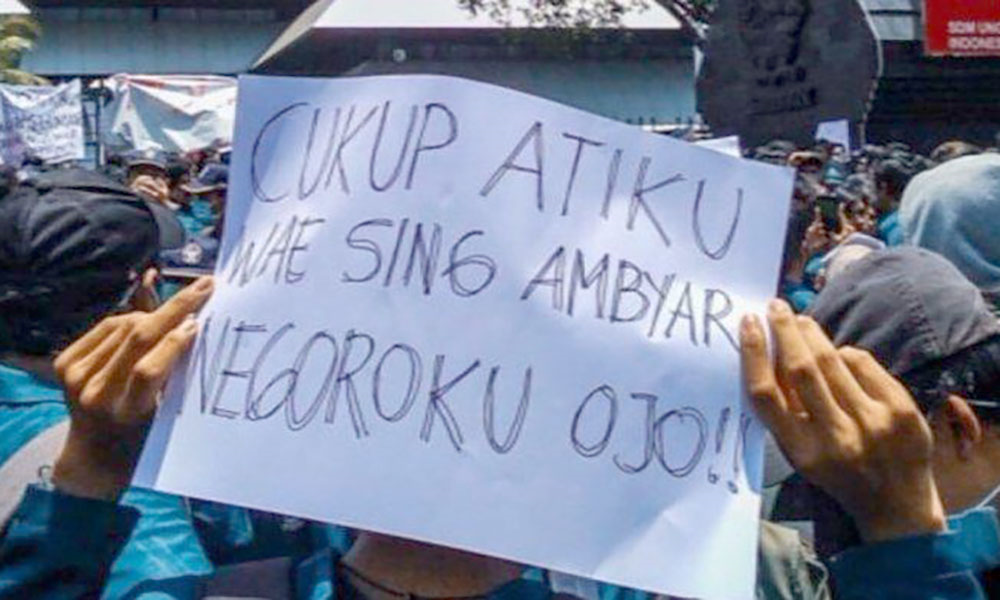 CUKUP ATIKU
WAE SING AMBYAR
NEGOROKU OJO!!
SDM UNG
INDONES